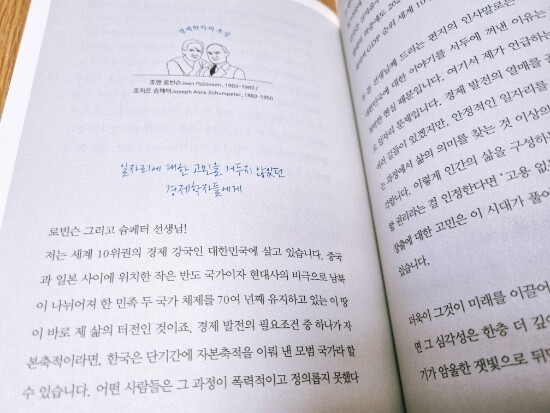 경제학자의 초상
조앤 로빈슨Joan Robinson, 1903~1983 /
조지프 슘페터Joseph Alois Schumpeter, 1883~1950
일자리에 대한 고민을 거두지 않았던
경제학자들에게
로빈슨 그리고 슘페터 선생님!
저는 세계 10위권의 경제 강국인 대한민국에 살고 있습니다. 중국
과 일본 사이에 위치한 작은 반도 국가이자 현대사의 비극으로 남북
이 나뉘어져 한 민족 두 국가 체제를 70여 년째 유지하고 있는 이 땅
이 바로 제 삶의 터전인 것이죠. 경제 발전의 필요조건 중 하나가 자
본축적이라면, 한국은 단기간에 자본축적을 이뤄 낸 모범 국가라 할
수 있습니다. 어떤 사람들은 그 과정이 폭력적이고 정의롭지 못했다
GDP 순위 세계 10
선생님께 드리는 편지의 인사말로는
대한민국에 대한 이야기를 서두에 꺼낸 이유는
현실 때문입니다. 여기서 제가 언급하는
일자리 문제입니다. 경제 발전의 열매를
길들이 있겠지만, 안정적인 일자리를
과정에서 삶의 의미를 찾는 것 이상의
이렇게 인간의 삶을 구성하
할 권리라는 걸 인정한다면 '고용 없
창출에 대한 고민은 이 시대가 풀어
있습니다.
더욱이 그것이 미래를 이끌어
면 그 심각성은 한층 더 깊
기가 암울한 잿빛으로 뒤